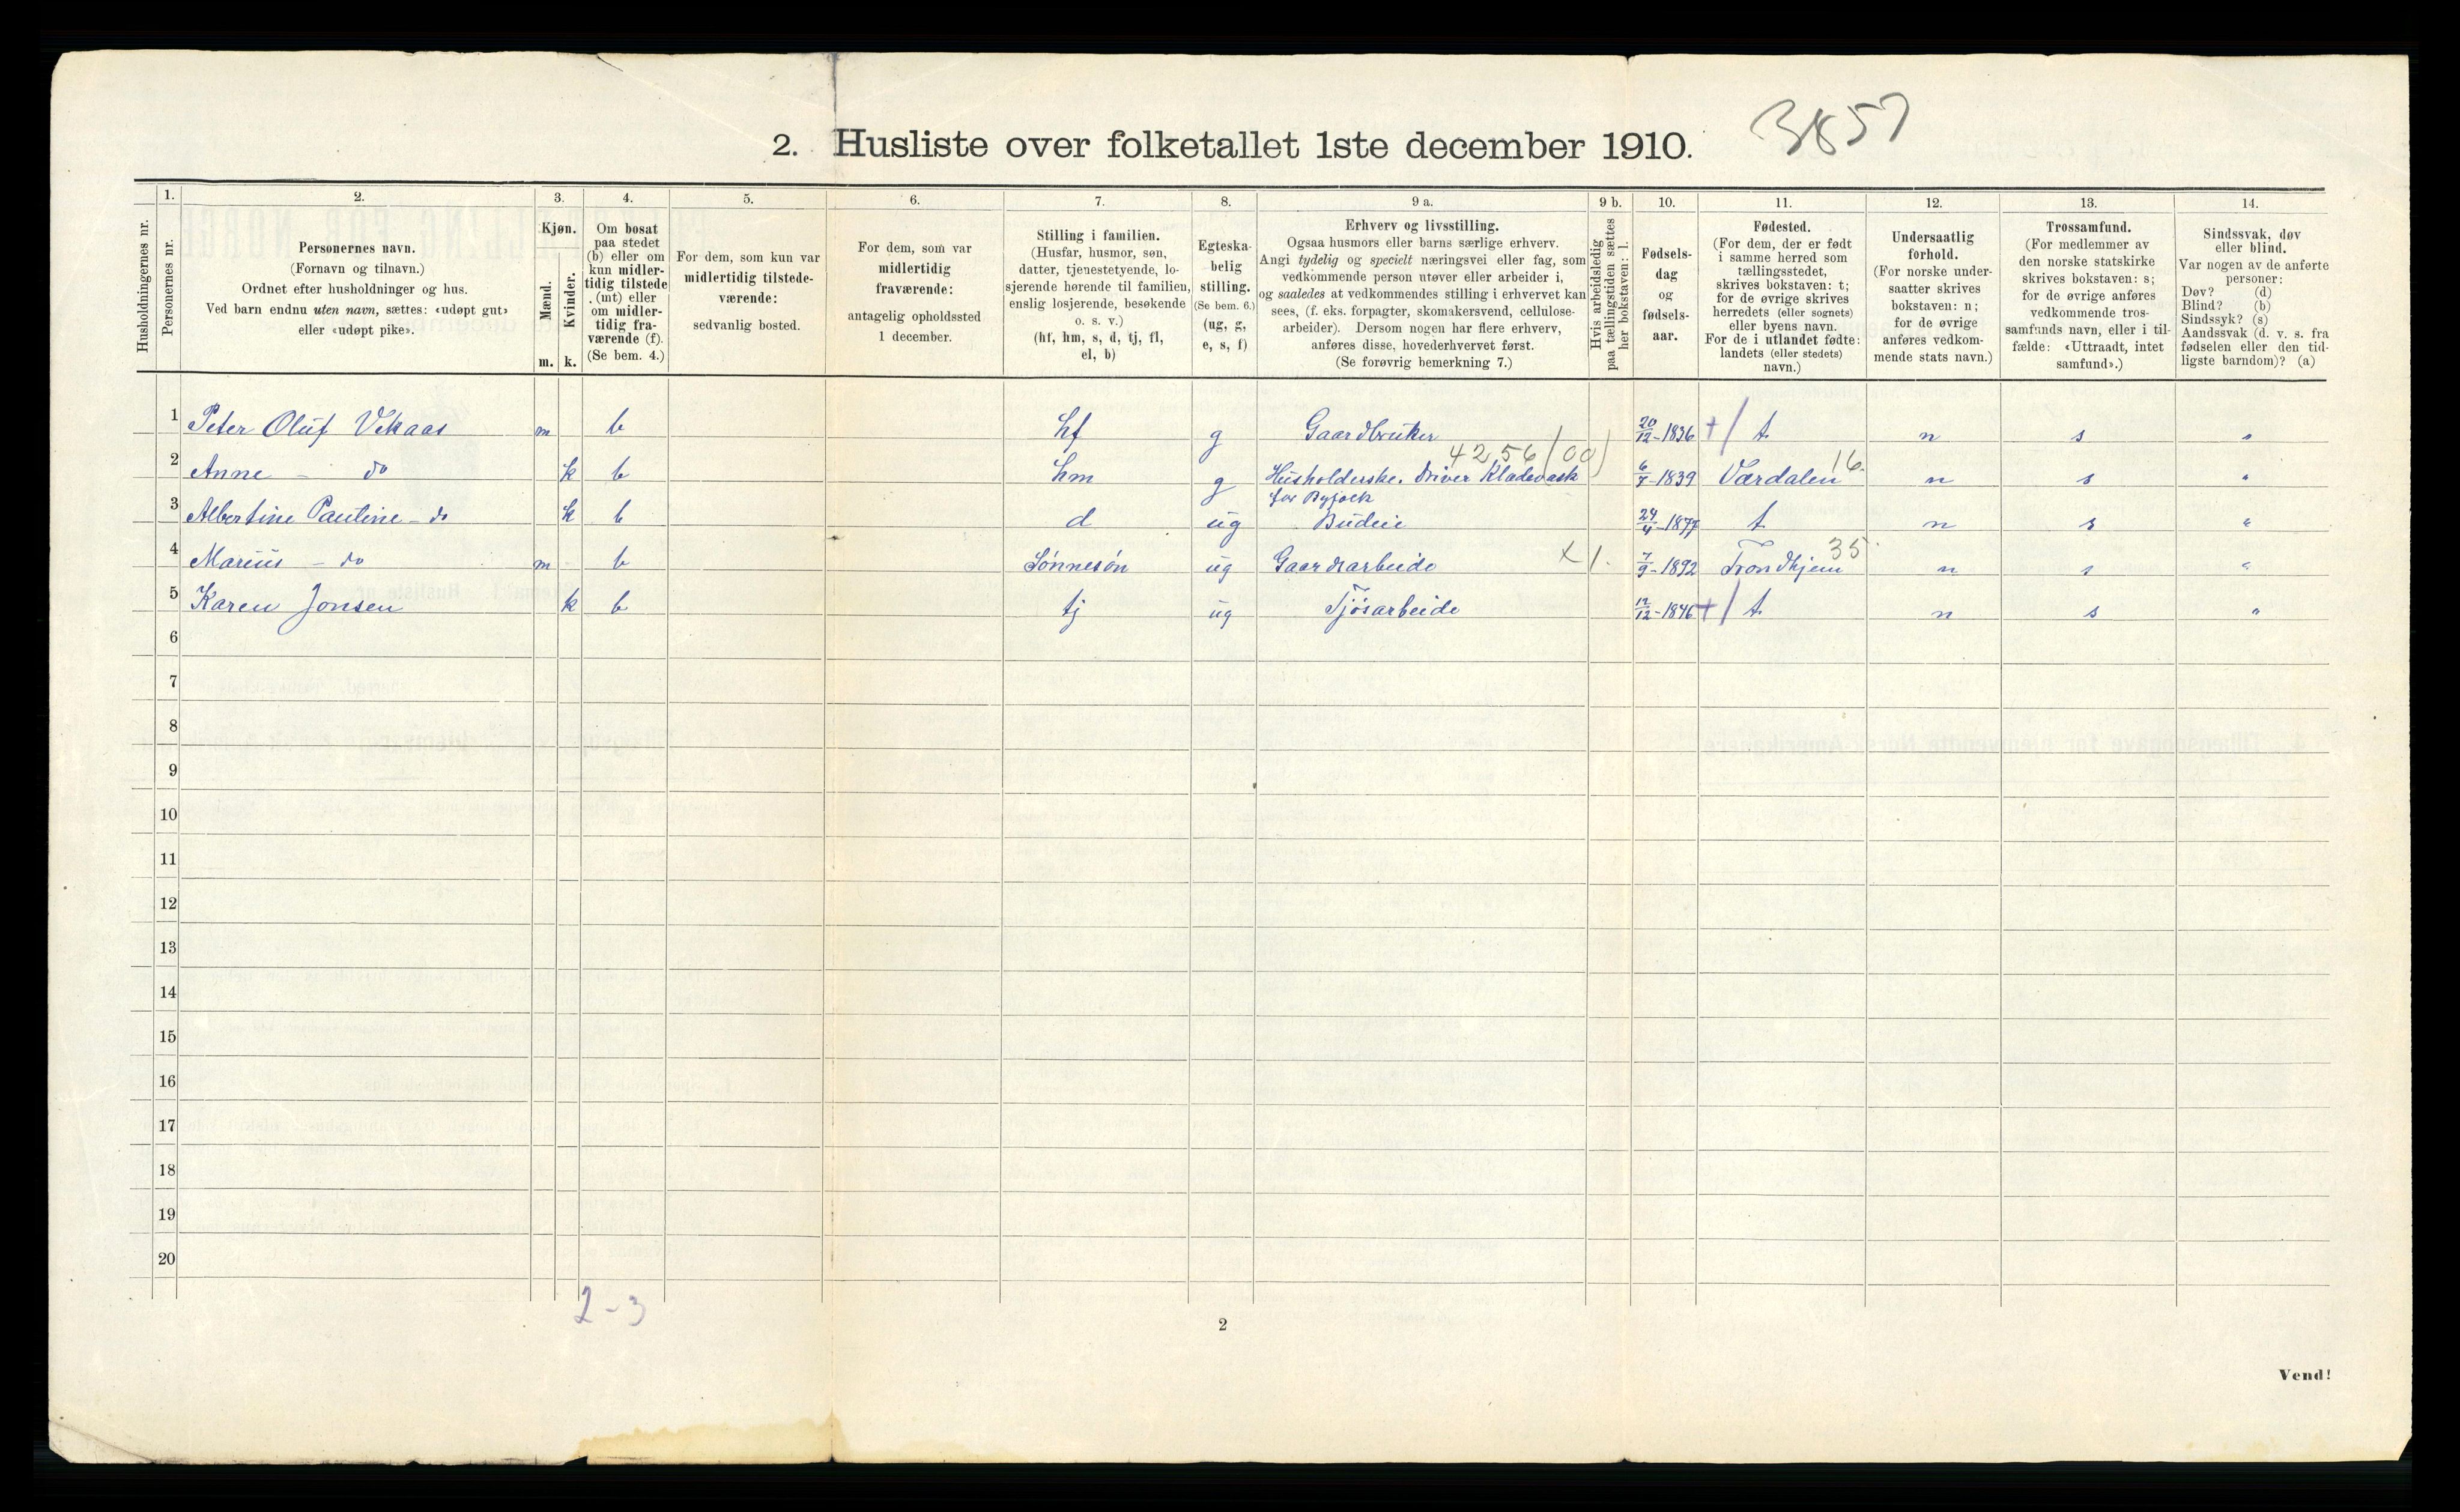 2. Husliste over folketallet 1ste december 1910.
3857
Husholdningernes nr.
1.
Personernes nr.
2.
Personernes navn.
(Fornavn og tilnavn.)
Ordnet efter husholdninger og hus.
Ved barn endnu uten navn, sættes: «udøpt gut»
eller «udøpt pike».
3.
Kjøn.
Mænd.
Kvinder.
m. k.
4.
Om bosat
paa stedet
(b) eller om
kun midler-
tidig tilstede
(mt) eller
om midler-
tidig fra-
værende (f).
(Se bem. 4.)
5.
For dem, som kun var
midlertidig tilstede-
værende:
sedvanlig bosted.
6.
For dem, som var
midlertidig
fraværende:
antagelig opholdssted
1 december.
7.
Stilling i familien.
(Husfar, husmor, søn,
datter, tjenestetyende, lo-
sjerende hørende til familien,
enslig losjerende, besøkende
o. s. v.)
(hf, hm, s, d, tj, fl,
el, b)
8.
Egteska-
belig
stilling.
(Se bem. 6.)
(ug, g,
e, s, f)
9 a.
Erhverv og livsstilling.
Ogsaa husmors eller barns særlige erhverv.
Angi tydelig og specielt næringsvei eller fag, som
vedkommende person utøver eller arbeider i,
og saaledes at vedkommendes stilling i erhvervet kan
sees, (f. eks. forpagter, skomakersvend, cellulose-
arbeider). Dersom nogen har flere erhverv,
anføres disse, hovederhvervet først.
(Se forøvrig bemerkning 7.)
9 b.
Hvis arbeidsledig
paa tællingstiden sættes
her bokstaven: l.
10.
Fødsels-
dag
og
fødsels-
aar.
11.
Fødested.
(For dem, der er født
i samme herred som
tællingsstedet,
skrives bokstaven: t;
for de øvrige skrives
herredets (eller sognets)
eller byens navn.
For de i utlandet fødte:
landets (eller stedets)
navn.)
12.
Undersaatlig
forhold.
(For norske under-
saatter skrives
bokstaven: n;
for de øvrige
anføres vedkom-
mende stats navn.)
13.
Trossamfund.
(For medlemmer av
den norske statskirke
skrives bokstaven: s;
for de øvrige anføres
vedkommende tros-
samfunds navn, eller i til-
fælde: «Uttraadt, intet
samfund».)
14.
Sindssvak, døv
eller blind.
Var nogen av de anførte
personer:
Døv? (d)
Blind? (b)
Sindssyk? (s)
Aandssvak (d. v. s. fra
fødselen eller den tid-
ligste barndom)? (a)
1 Peter Oluf Vikaas m b hf g Gaardbruker 20/12-1836 +/ t n s "
4256/00)
2 Anne - do k b hm g Husholderske. Driver Klædevask 6/7-1839 Værdalen 16. n s "
for Byfolk
3 Albertine Pauline - do k b d ug Budeie 24/4-1877 t n s "
4 Marius - do m b Sønnesøn ug Gaardsarbeide x 1. 7/9-1892 Trondhjem 35 n s "
5 Karen Jonsen k b tj ug Fjøsarbeide 12/12-1846 +/ t n s "
6
7
8
9
10
11
12
13
14
15
16
17
18
19
20
2-3
2
Vend!